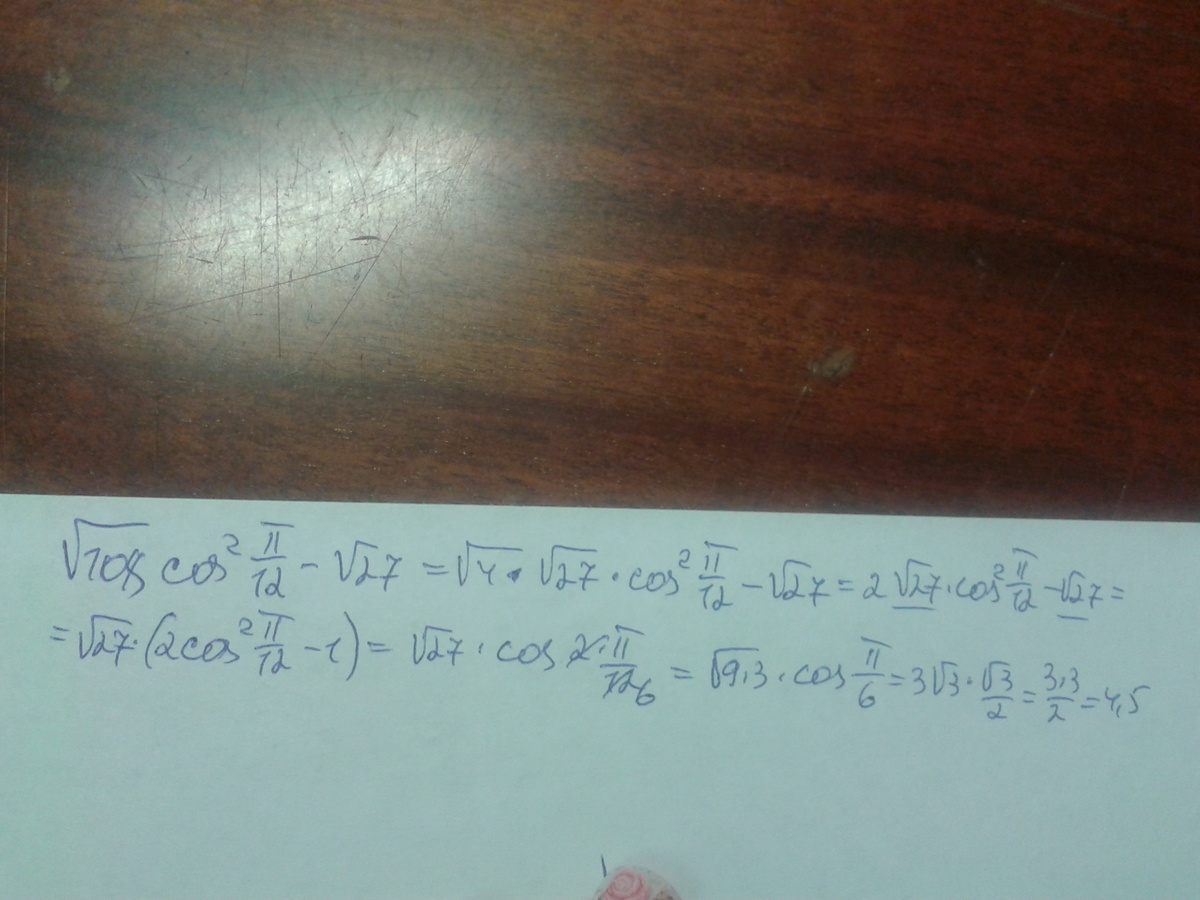 √108 cos² π/12 - √27 = √4 · √27 · cos² π/12 - √27 = 2 √27 · cos² π/12 - √27 =
= √27 · (2cos² π/12 - 1) = √27 · cos 2 · π/12 6 = √9·3 · cos π/6 = 3√3 · √3/2 = 3·3/2 = 4,5